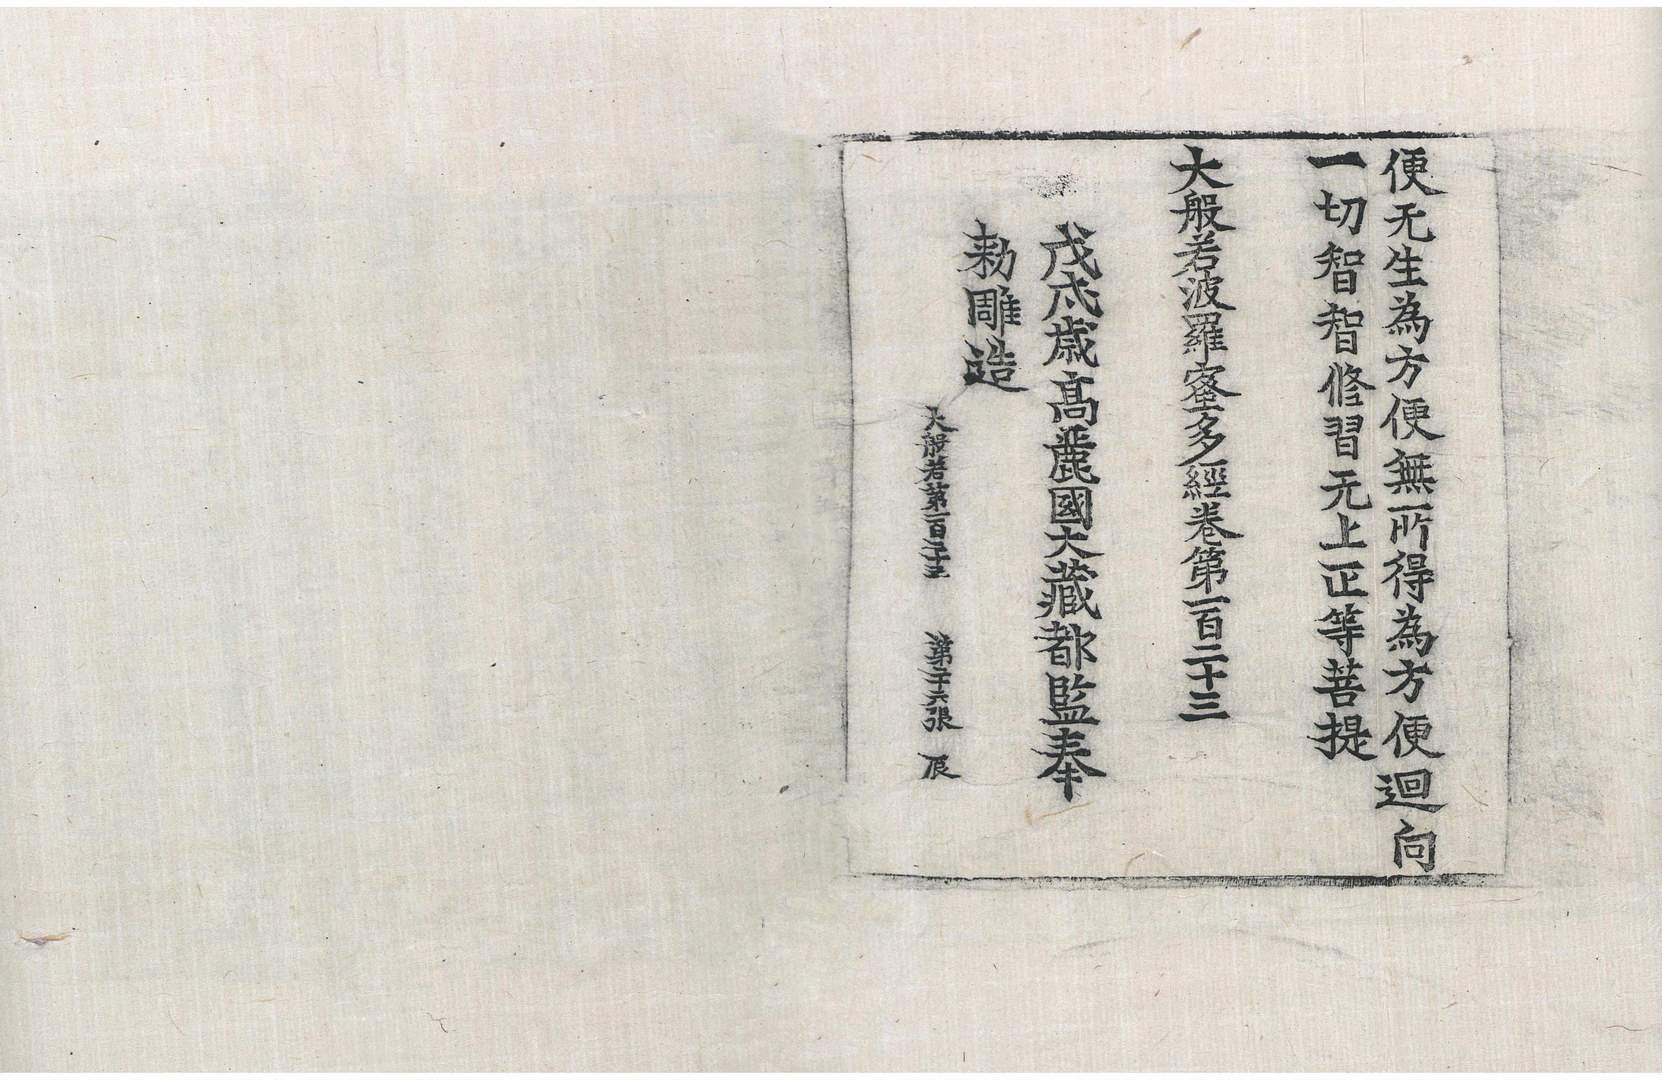 便无生為方便無所得為方便迴向
一切智智修習无上正等菩提
大般若波羅蜜多經卷第一百二十三
戊戌歲高麗國大藏都監奉
勑雕造
大般若第一百二十三 第二十六張 辰